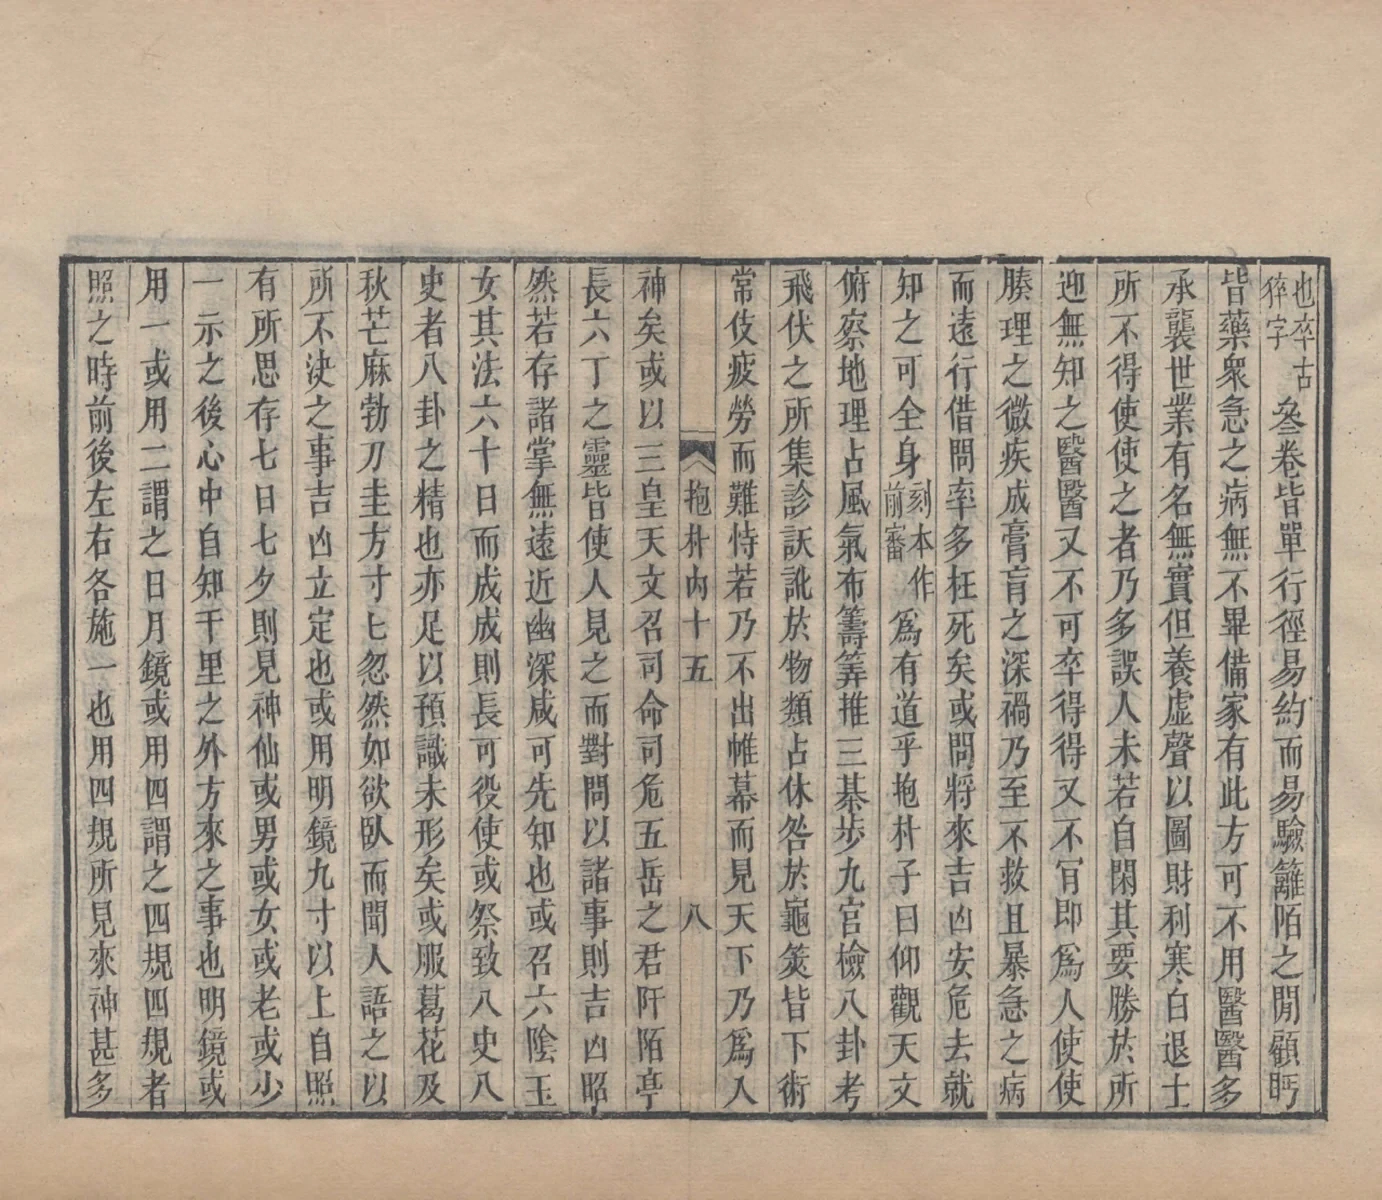 也卒古
猝字
叄卷皆單行徑易約而易驗籬陌之閒顧眄
皆藥衆急之病無不畢備家有此方可不用醫醫多
承襲世業有名無實但養虛聲以圖財利寒白退士
所不得使使之者乃多誤人未若自閑其要勝於所
迎無知之醫醫又不可卒得得又不肎即爲人使使
腠理之微疾成膏肓之深禍乃至不救且暴急之病
而遠行借問率多枉死矣或問將來吉凶安危去就
知之可全身刻本作前審爲有道乎抱朴子曰仰觀天文
俯察地理占風氣布籌筭推三棊步九宮檢八卦考
飛伏之所集診訞訛於物類占休咎於龜筴皆下術
常伎疲勞而難恃若乃不出帷幕而見天下乃爲入
抱朴內十五 八
神矣或以三皇天文召司命司危五岳之君阡陌亭
長六丁之靈皆使人見之而對問以諸事則吉凶昭
然若存諸掌無遠近幽深咸可先知也或召六陰玉
女其法六十日而成成則長可役使或祭致八史八
史者八卦之精也亦足以預識未形矣或服葛花及
秋芒麻勃刀圭方寸匕忽然如欲臥而聞人語之以
所不決之事吉凶立定也或用明鏡九寸以上自照
有所思存七日七夕則見神仙或男或女或老或少
一示之後心中自知千里之外方來之事也明鏡或
用一或用二謂之日月鏡或用四謂之四規四規者
照之時前後左右各施一也用四規所見來神甚多